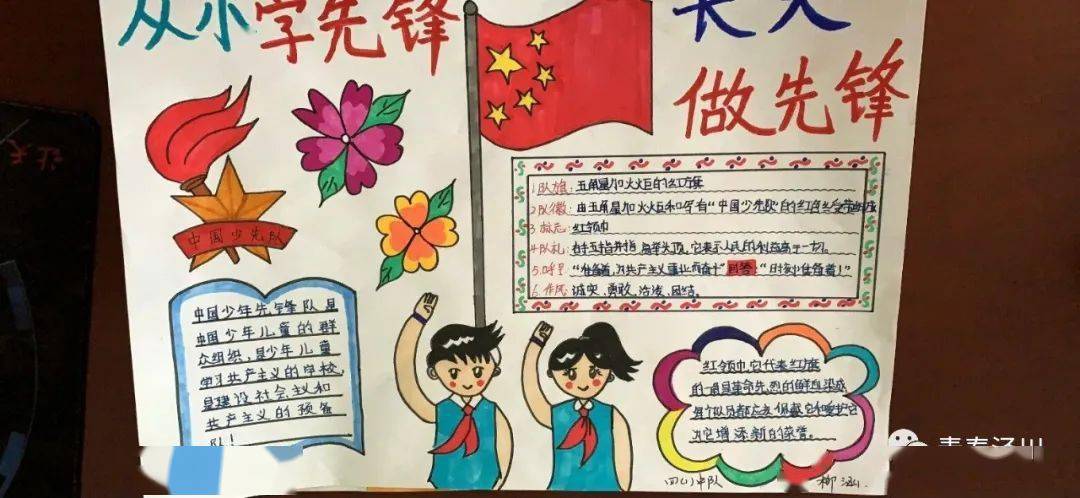 从小学先锋
长大
做先锋
中国少先队
1.队旗：五角星加火火巨的红旗
2.队徽：由五角星加火火巨和写有“中国少先队”的红色绶带组成
3.标志：红领巾
4.队礼：右手五指并拢,高举头顶,它表示人民的利益高于一切。
5.呼号：“准备着,为共产主义事业而奋斗”回答：“时刻准备着！”
6.作风：诚实、勇敢、活泼、团结。
中国少年先锋队是
中国少年儿童的群
众组织,是少年儿童
学习共产主义的学校,
是建设社会主义和
共产主义的预备
队！
红领巾,它代表红旗
的一角,是革命先烈的鲜血染成
每个队员都应该佩戴它和爱护它
为它增添新的荣誉。
四(1)中队
柳涵.
青春泾川